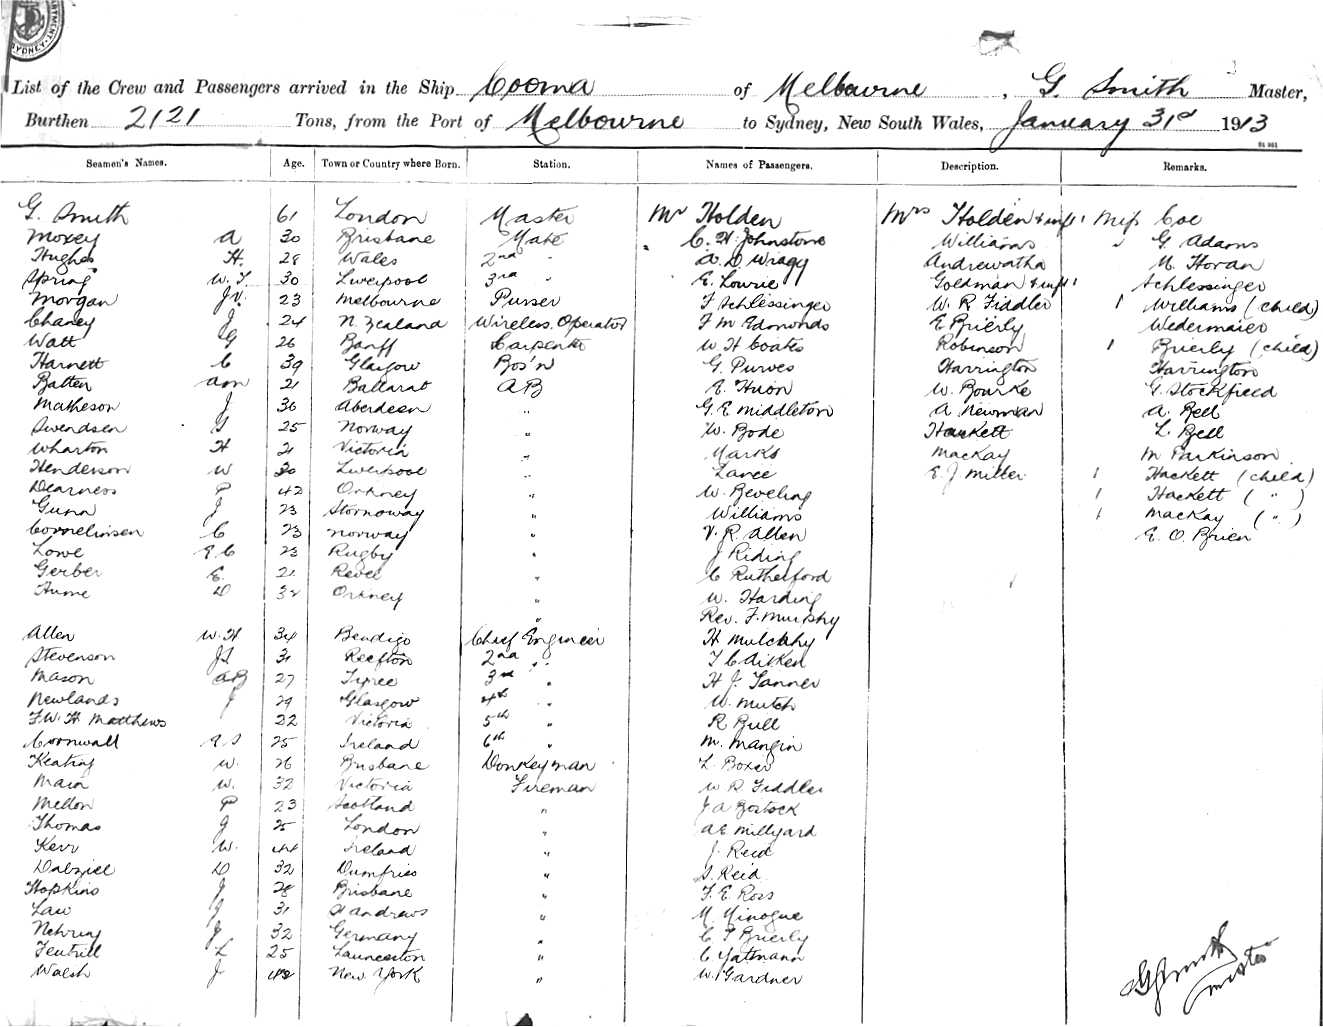 DEPARTMENT
SYDNEY
List of the Crew and Passengers arrived in the Ship Cooma of Melbourne, G. Smith Master,
Burthen 2121 Tons, from the Port of Melbourne to Sydney, New South Wales, January 31st 1913
Seamen's Names. Age. Town or Country where Born. Station. Names of Passengers. Description. Remarks.
G. Smith 61 London Master Mr Holden Mrs Holden & inft 1 Miss Coe
Moxey A 30 Brisbane Mate C. H. Johnstone Williams G. Adams
Hughes H. 28 Wales 2nd " A. D Wragg Andrewatha M. Horan
Spring W. T 30 Liverpool 3rd " E. Lowrie Goldman & inft 1 Schlessinger
Morgan 23 Melbourne Purser F Schlessinger W. R Fiddler 1 Williams (child)
Chaney J 24 N. Zealand Wireless. Operator F M Edmonds E Brierly Wedermaier
Watt G 26 Banff Carpenter W H Coates Robinson 1 Brierly (child)
Harnett C 39 Glasgow Bos'n G. Purves Harrington Harrington
Batten 21 Ballarat AB E. Huon W. Bourke G. Stockfield
Matheson J 36 Aberdeen " G. E Middleton A Newman A. Bell
Swendsen G 25 Norway " W. Bode Hackett L. Bell
Wharton H 21 Victoria " Marks MacKay M Parkinson
Henderson W 30 Liverpool " Lance E. J. Miller 1 Hackett (child)
Dearness P 42 Orkney " W. Beveling 1 Hackett ( " )
Gunn J 23 Stornoway " Williams 1 MacKay ( " )
Cornelinsen C 23 Norway " V. R. Allen E. O. Brien
Lowe A C 23 Rugby " J Riding
Gerber E. 21 " C Rutherford
Hume D Orkney " W. Harding
" Rev. F. Murphy
Allen W. H 34 Bendigo Chief Engineer H Mulcahy
Stevenson 31 Reefton 2nd " T C Aitken
Mason AB 27 Tyree 3rd " H J. Tanner
Newlands J 29 Glasgow 4th " W. Mutch
F. W. H Matthews 22 Victoria 5th " R Bull
Cornwall 25 Ireland 6th " M. Mangin
Keating W. 26 Brisbane Donkeyman L Boxer
Main W. 32 Victoria Fireman W R Fiddler
Mellon P 23 Scotland " J A Bostock
Thomas J 25 London " A E Millyard
Kerr W. 44 Ireland " J. Reid
Dalziel D 32 Dumfries " S. Reid
Hopkins J 28 Brisbane " F. E Ross
Law J 31 St Andrews " M. Minogue
Nehring J 32 Germany " C T Brierly
Feutrill L 25 Launceston " C Yattmann
Walsh J 48 New York " W. Gardner
G Smith
Master